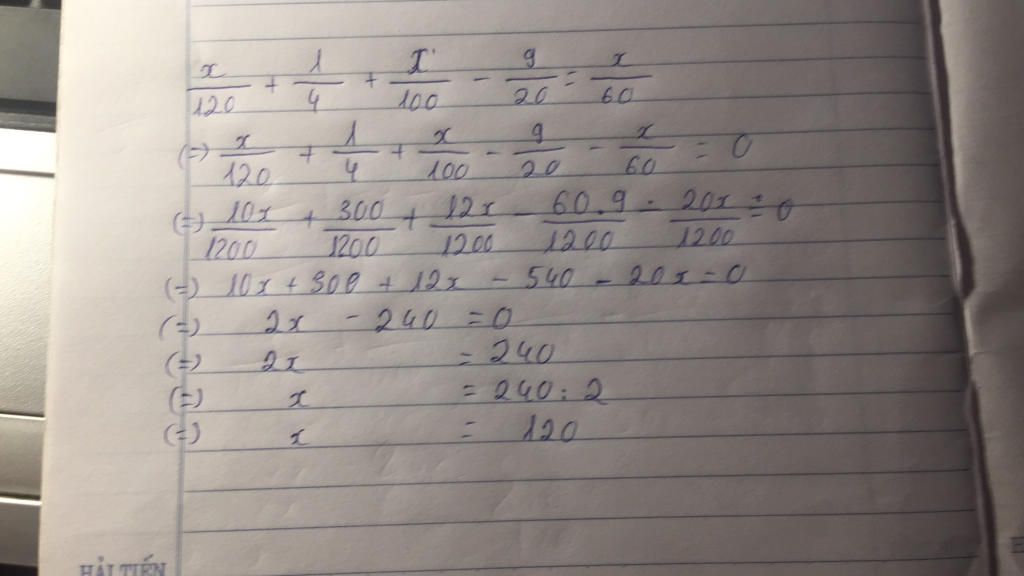 x/120 + 1/4 + x/100 - 9/20 = x/60
(=) x/120 + 1/4 + x/100 - 9/20 - x/60 = 0
(=) 10x/1200 + 300/1200 + 12x/1200 - 60.9/1200 - 20x/1200 = 0
(=) 10x + 300 + 12x - 540 - 20x = 0
(=) 2x - 240 = 0
(=) 2x = 240
(=) x = 240 : 2
(=) x = 120
HẢI TIẾN